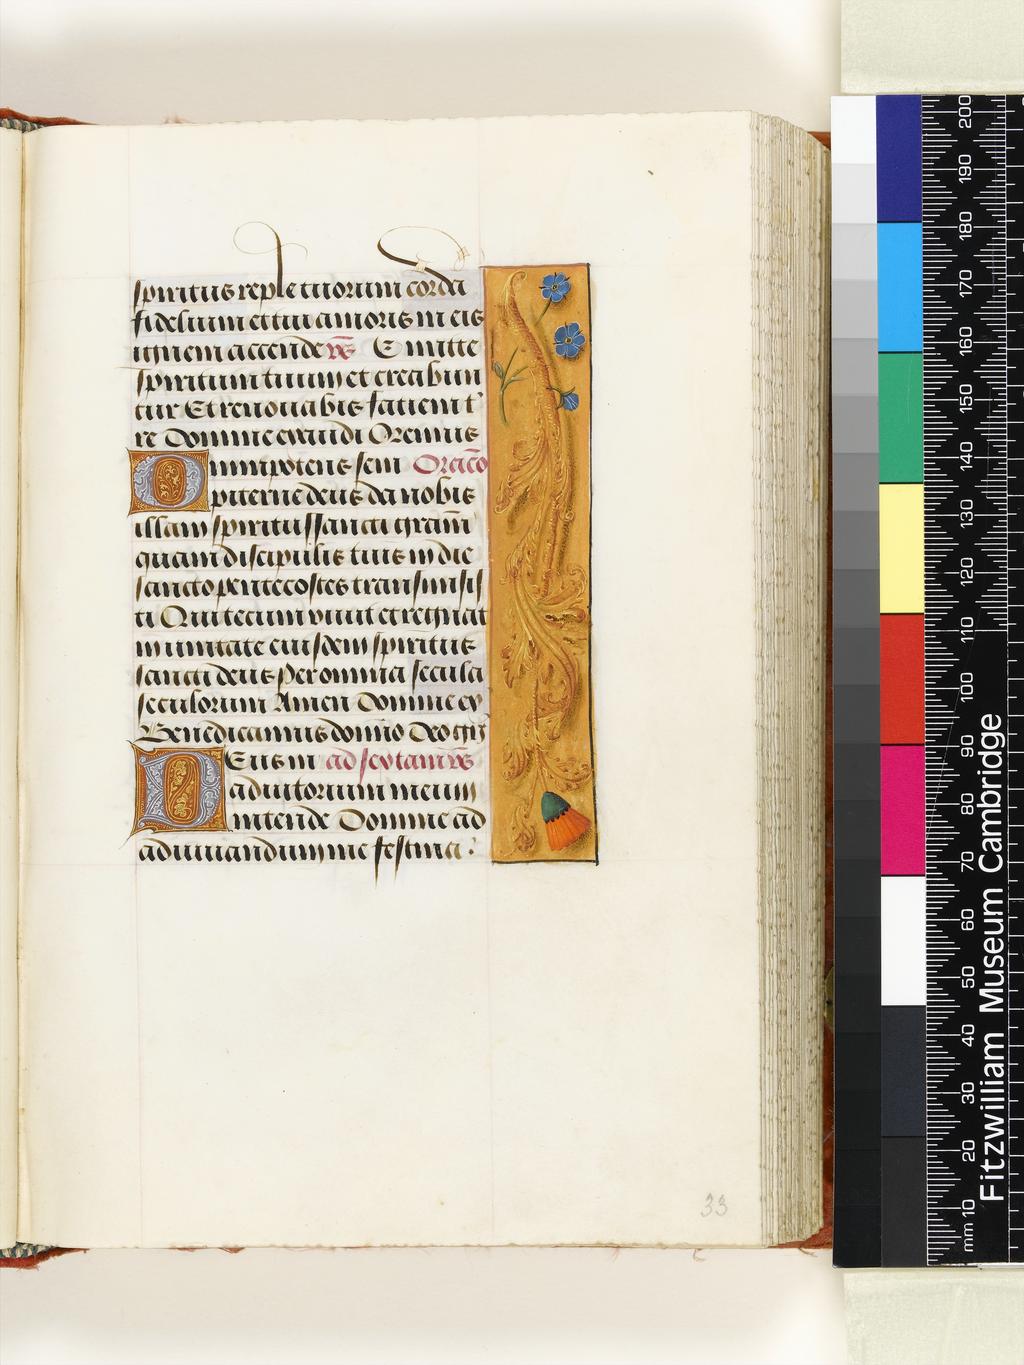 spiritus reple tuorum corda
fidelium et tui amoris in eis
ignem accende vs Emitte
spiritum tuum et creabun
tur Et renovabis faciem t
re Domine exaudi Oremus
Omnipotens sem Oracio
piterne deus da nobis
illam spiritus sancti graam
quam discipulis tuis in die
sancto pentecostes transmisis
ti Qui tecum vivit et regnat
in unitate eiusdem spiritus
sancti deus Per omnia secula
seculorum Amen Domine ex
Benedicamus domino Deo
DEus in ad sextam vs
adiutorium meum
intende Domine ad
adiuvandum me festina
33
Fitzwilliam Museum Cambridge
mm 10 20 30 40 50 60 70 80 90 100 110 120 130 140 150 160 170 180 190 200